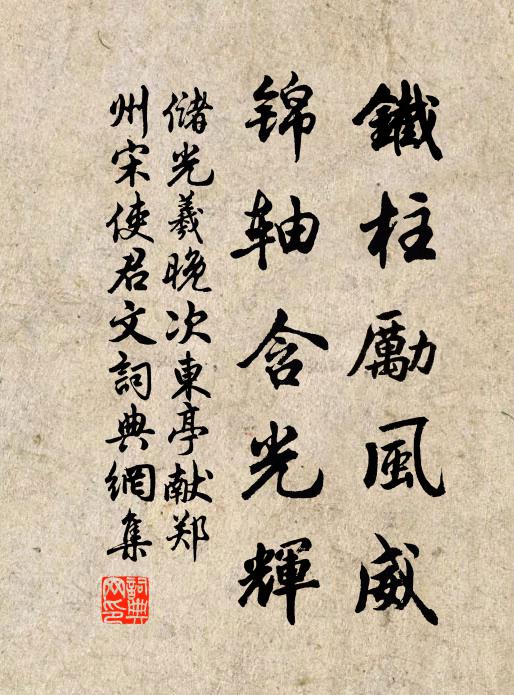 鐵柱勵風威
锦轴含光輝
储光羲晚次東亭献郑
州宋使君文詞典網集
詞典
网印